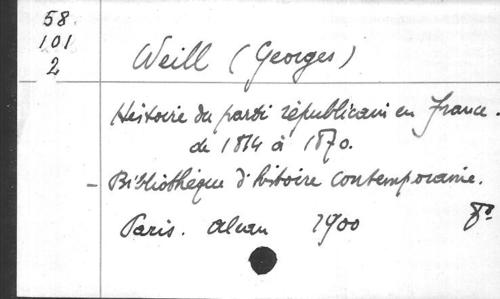 58.
101
2
Weill (Georges)
Histoire du parti républicain en France.
de 1814 à 1870.
- Bibliothèque d'histoire contemporanie.
Paris. Alcan 1900 8º